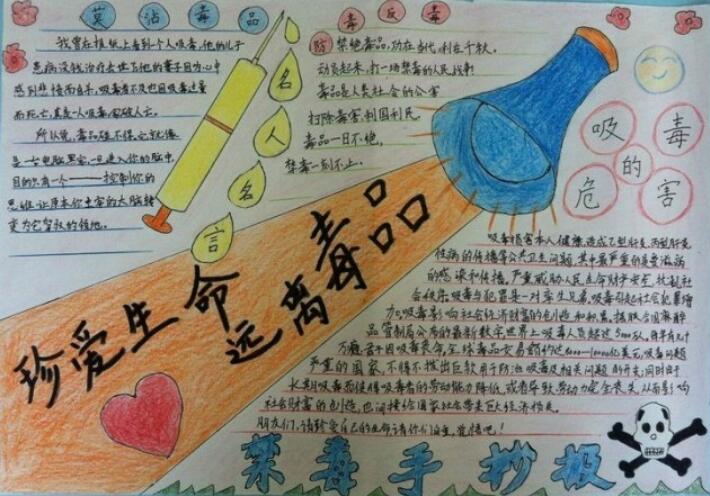 莫沾毒品
我曾在报纸上看到一个人吸毒,他的儿子
患病没钱治疗去世了他的妻子因为心中
感到悲愤而自杀,吸毒者不久也因吸毒过量
而死亡,真是一人吸毒,家破人亡。
所以说,毒品碰不得,它就像
是一台电脑黑客,一旦进入你的脑中,
目的只有一个——控制你的
思维,让原本你丰富的大脑转
变为它贫瘠的领地。
名人名言
毒反毒
防 禁绝毒品,功在当代,利在千秋。
动员起来,打一场禁毒的人民战争!
毒品是人类社会的公害
扫除毒害,利国利民。
毒品一日不绝,
禁毒一刻不止。
吸毒的危害
吸毒损害本人健康,造成乙型肝炎、丙型肝炎
性病的传播等公共卫生问题,其中最严重的是艾滋病
的感染和传播。严重威胁人民生命财产安全,扰乱社
会秩序,吸毒与犯罪是一对孪生兄弟,吸毒引起社会犯罪增
力。吸毒影响社会经济财富的创造和积累,据联合国麻醉
品管制局公布的最新数字,世界上吸毒人员超过5000万,每年有几十
万瘾君子因吸毒丧命,全球毒品交易额约达8000—10000亿美元,吸毒问题
严重的国家,不得不拨出巨款用于防治吸毒及相关问题的开支;同时由于
长期吸毒而使得吸毒者的劳动能力降低,或者导致劳动力完全丧失,从而影响
社会财富的创造,也间接给国家社会带来巨大经济损失。
朋友们,请珍爱自己的生命,请你们
珍爱生命
远离毒品
禁毒手抄报